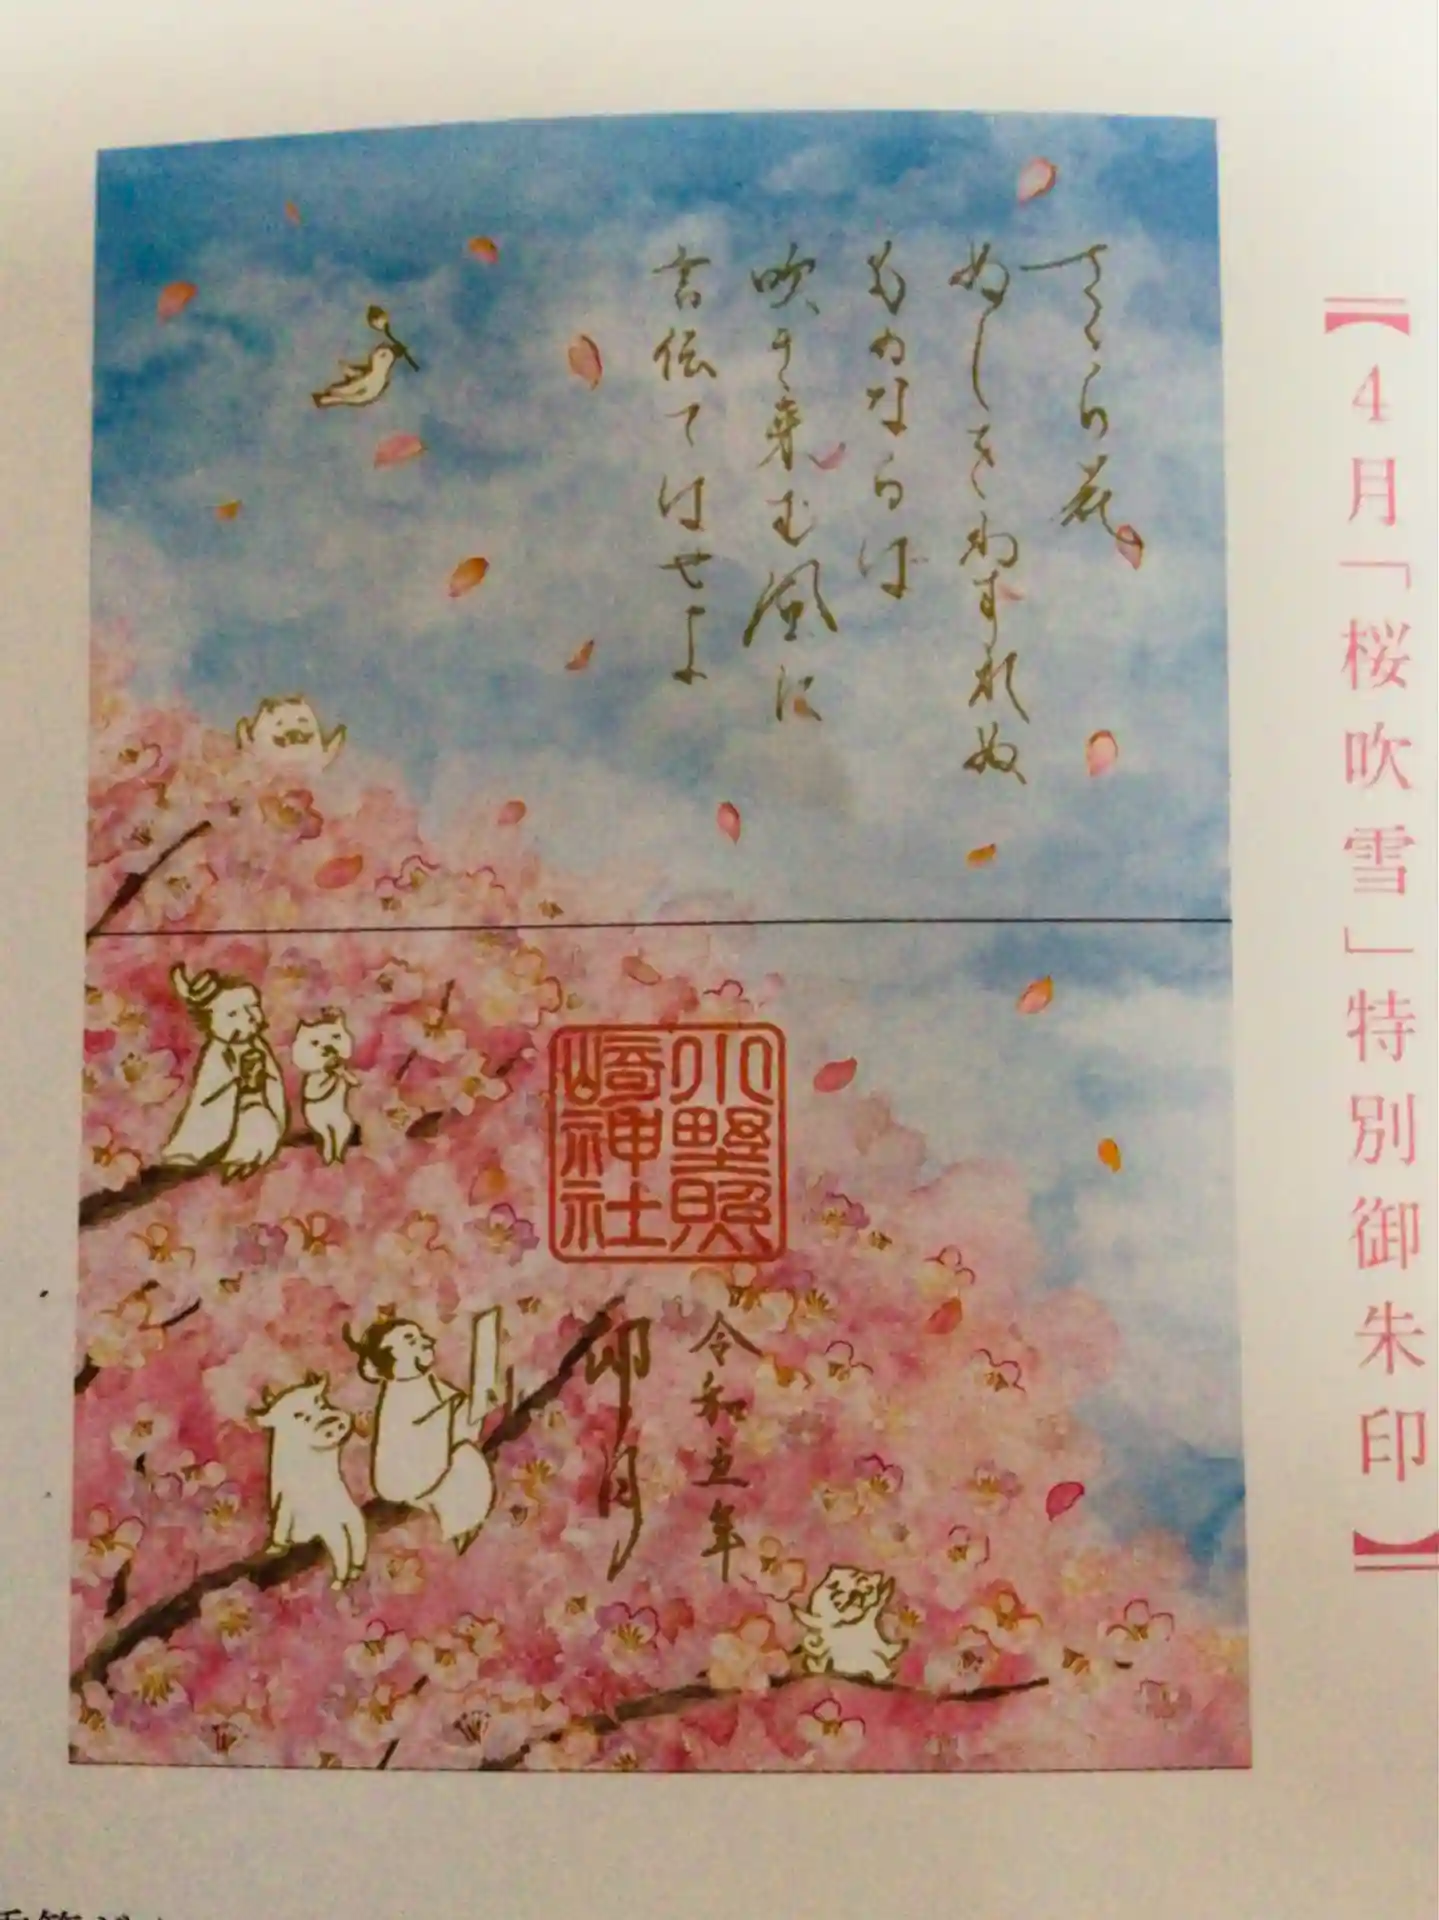 【4月「桜吹雪」特別御朱印】
さくら花
ぬしをわすれぬ
ものならば
吹き来む風に
言伝てはせよ
小野照
崎神社
令和五年
卯月